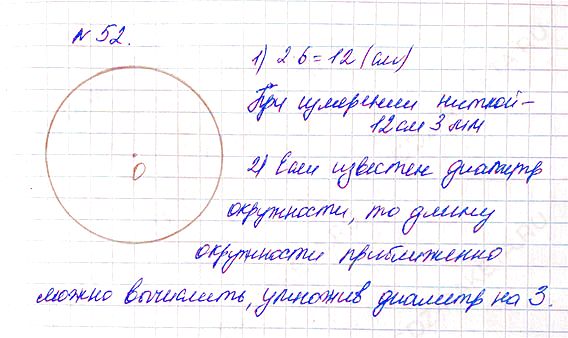 № 52.
1) 2 6 = 12 (см)
При измерении ниткой –
12 см 3 мм
O
2) Если известен диаметр
окружности, то длину
окружности приближенно
можно вычислить, умножив диаметр на 3.